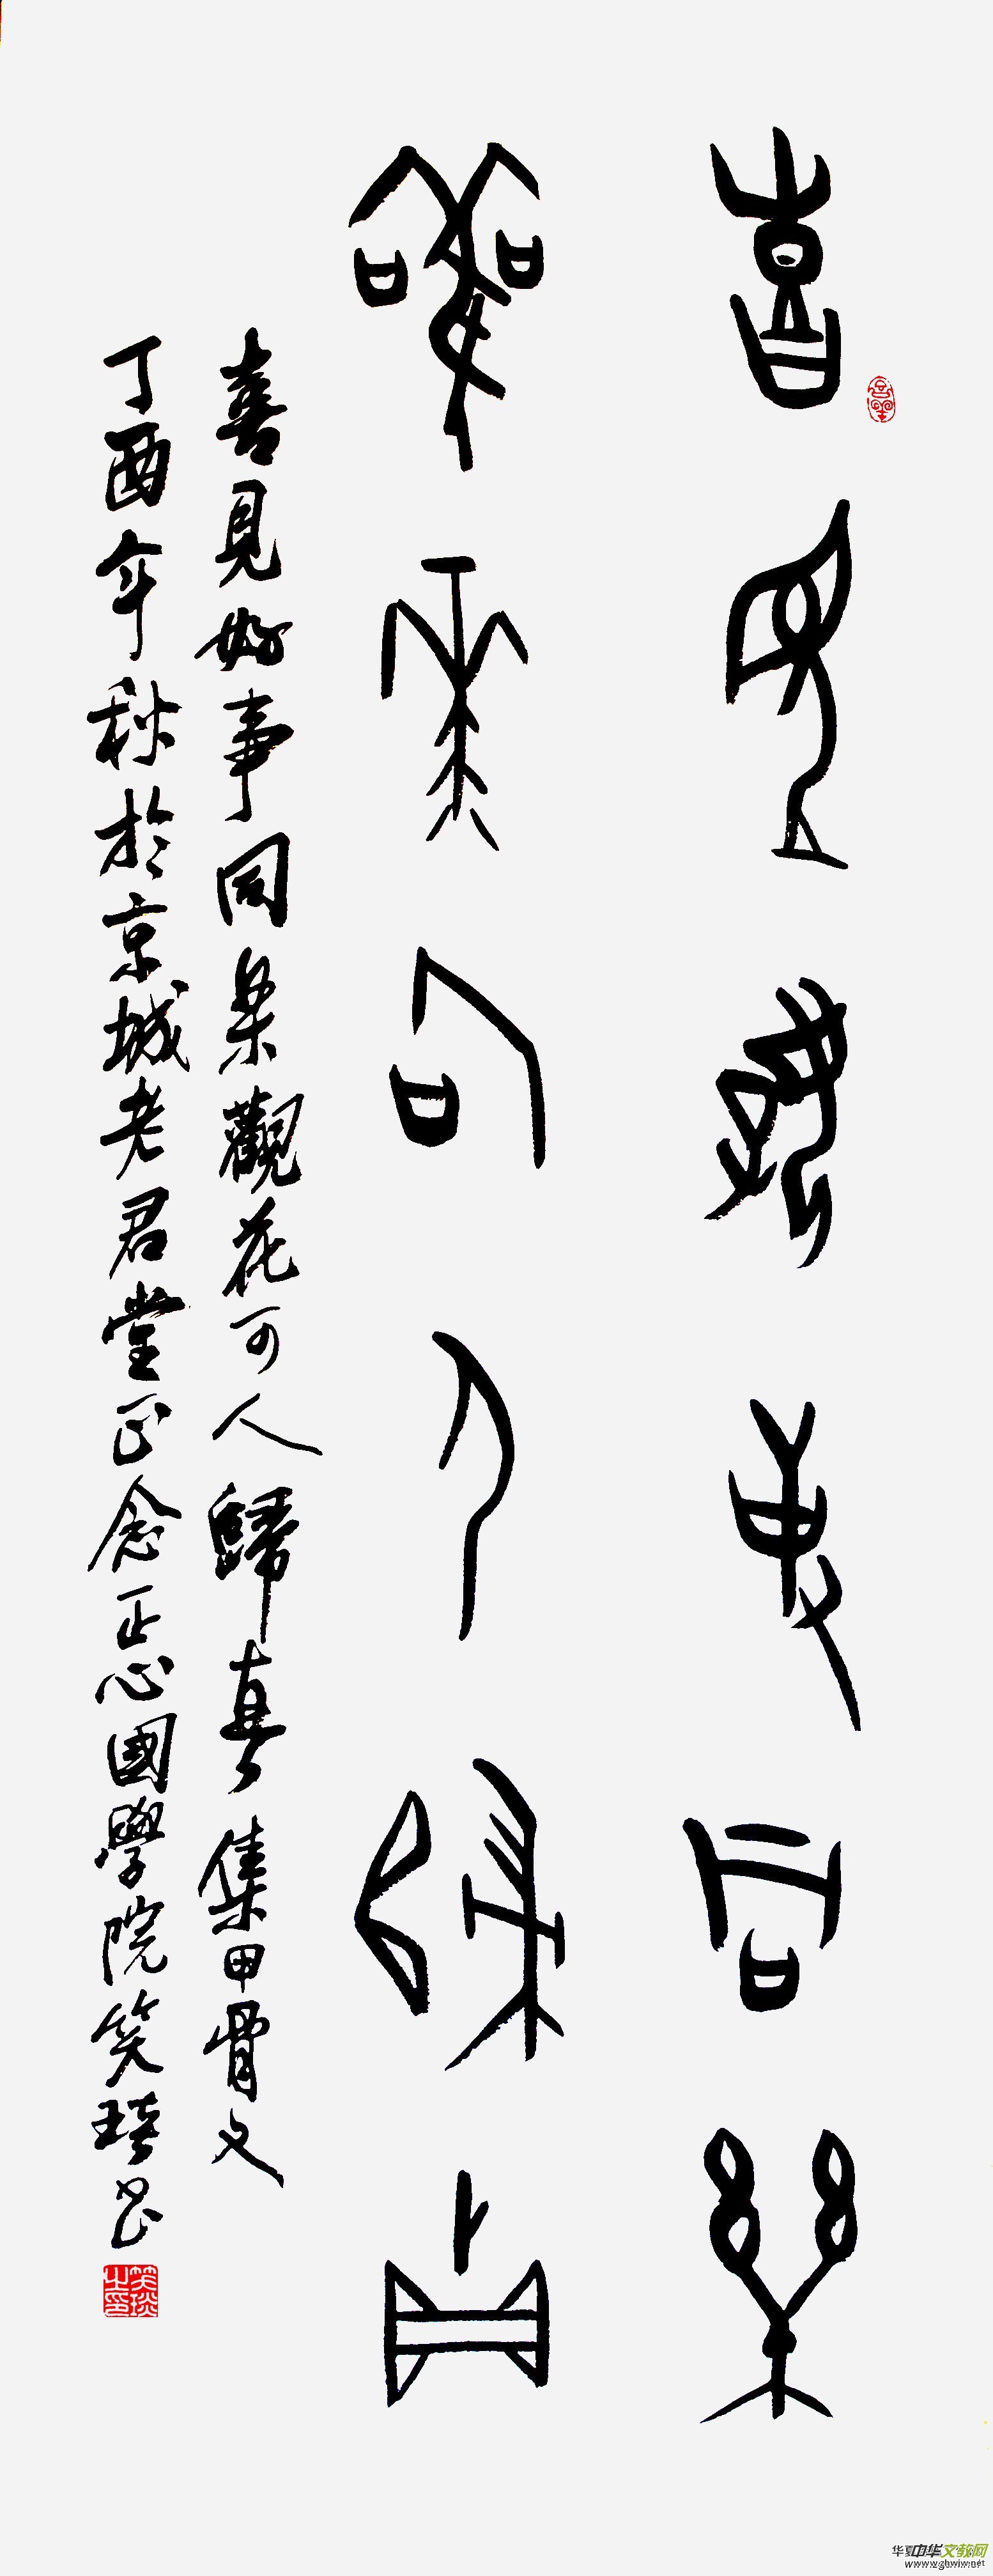 喜見好事同樂
觀花可人歸真
喜見好事同樂觀花可人歸真集甲骨文
丁酉年秋於京城老君堂正念正心國學院笑琰书
中华文教网
www.zghwjw.net